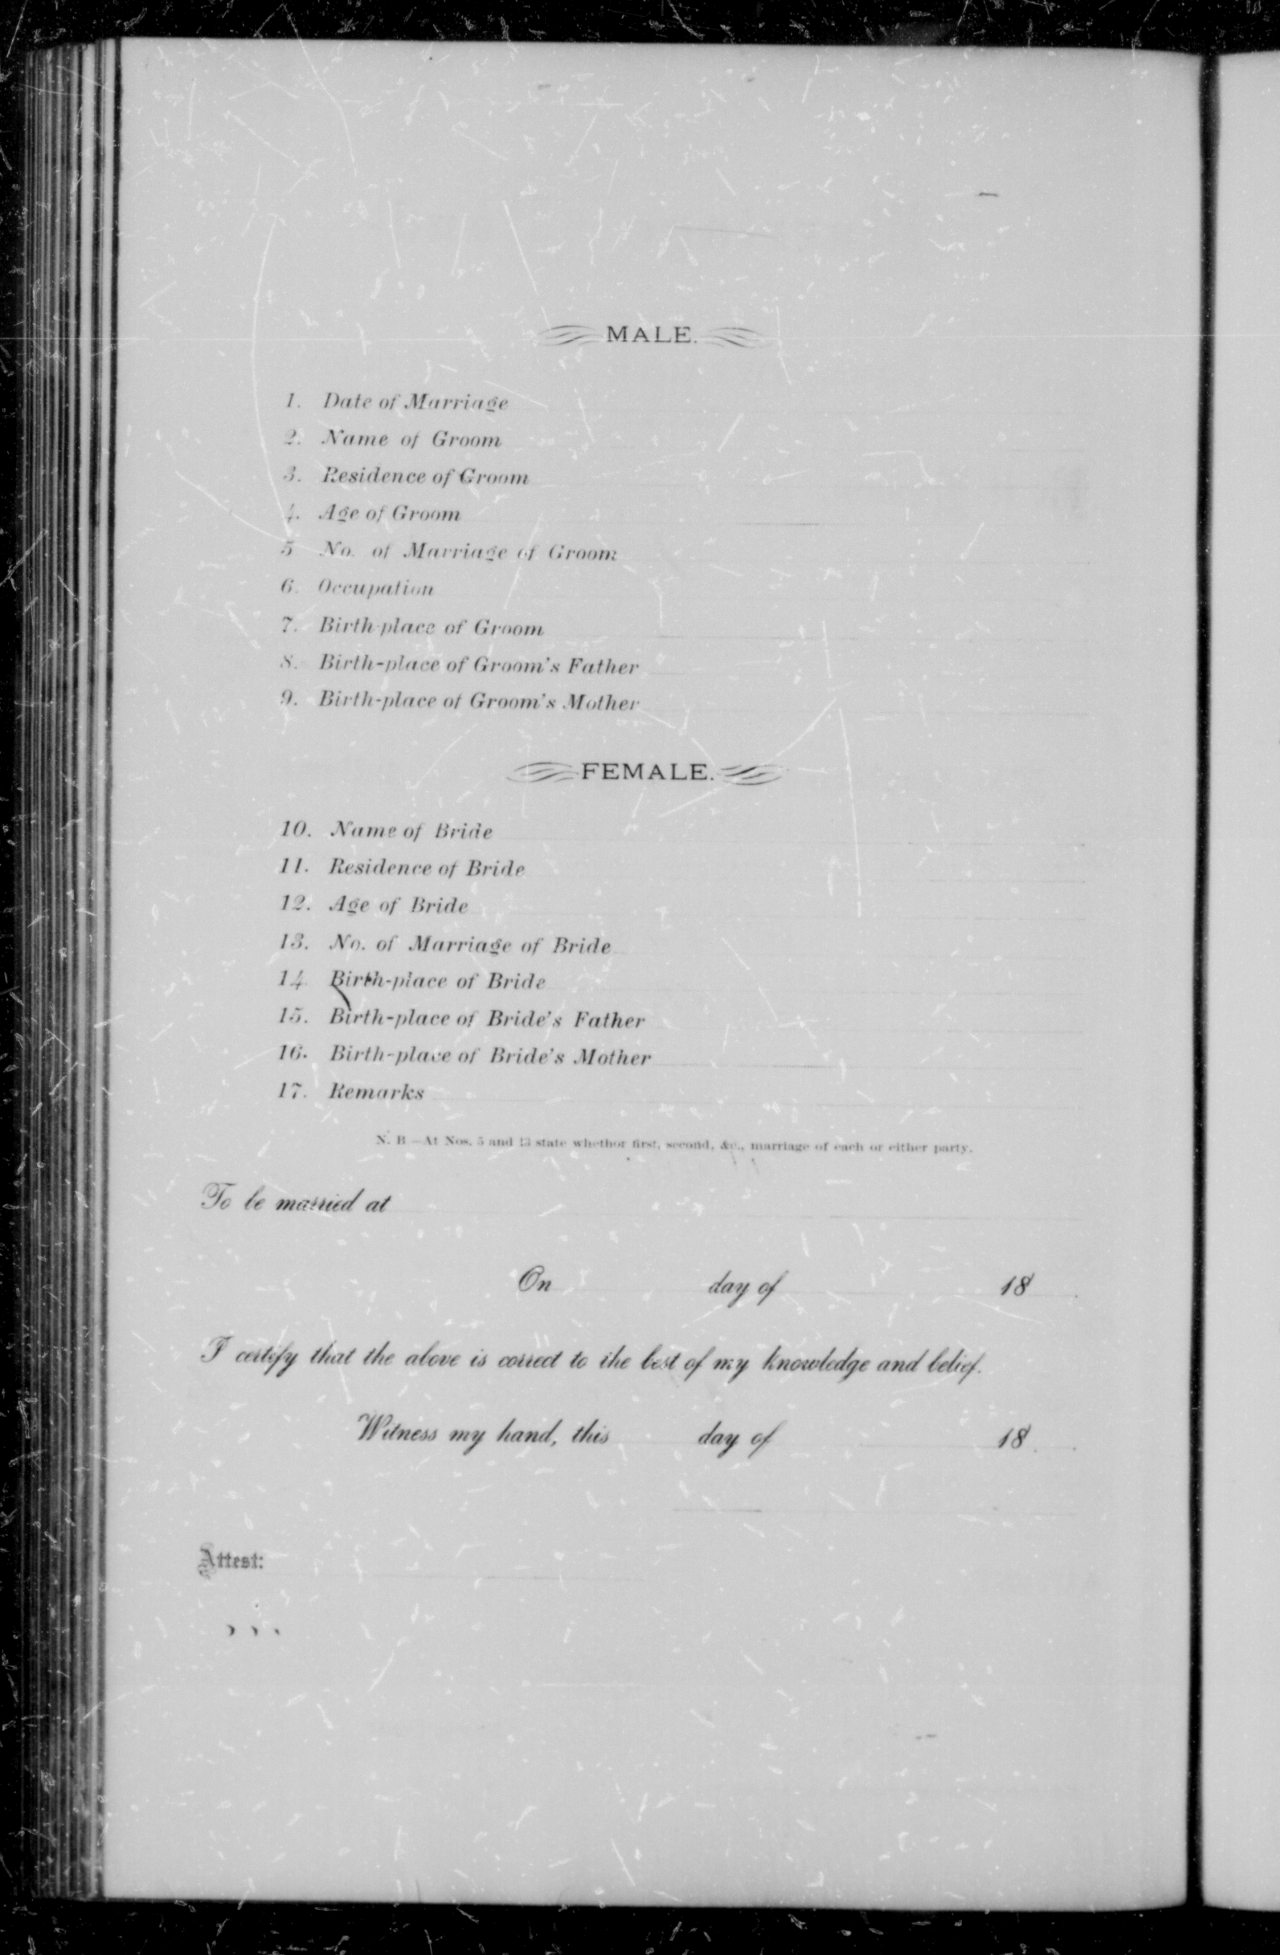 MALE.
1. Date of Marriage
2. Name of Groom
3. Residence of Groom
4. Age of Groom
5 No. of Marriage of Groom
6. Occupation
7. Birth-place of Groom
8. Birth-place of Groom's Father
9. Birth-place of Groom's Mother
FEMALE.
10. Name of Bride
11. Residence of Bride
12. Age of Bride
13. No. of Marriage of Bride
14 Birth-place of Bride
15. Birth-place of Bride's Father
16. Birth-place of Bride's Mother
17. Remarks
N. B —At Nos. 5 and 13 state whether first, second, &c., marriage of each or either party.
To be married at
On day of 18
I certify that the above is correct to the best of my knowledge and belief.
Witness my hand, this day of 18
Attest: